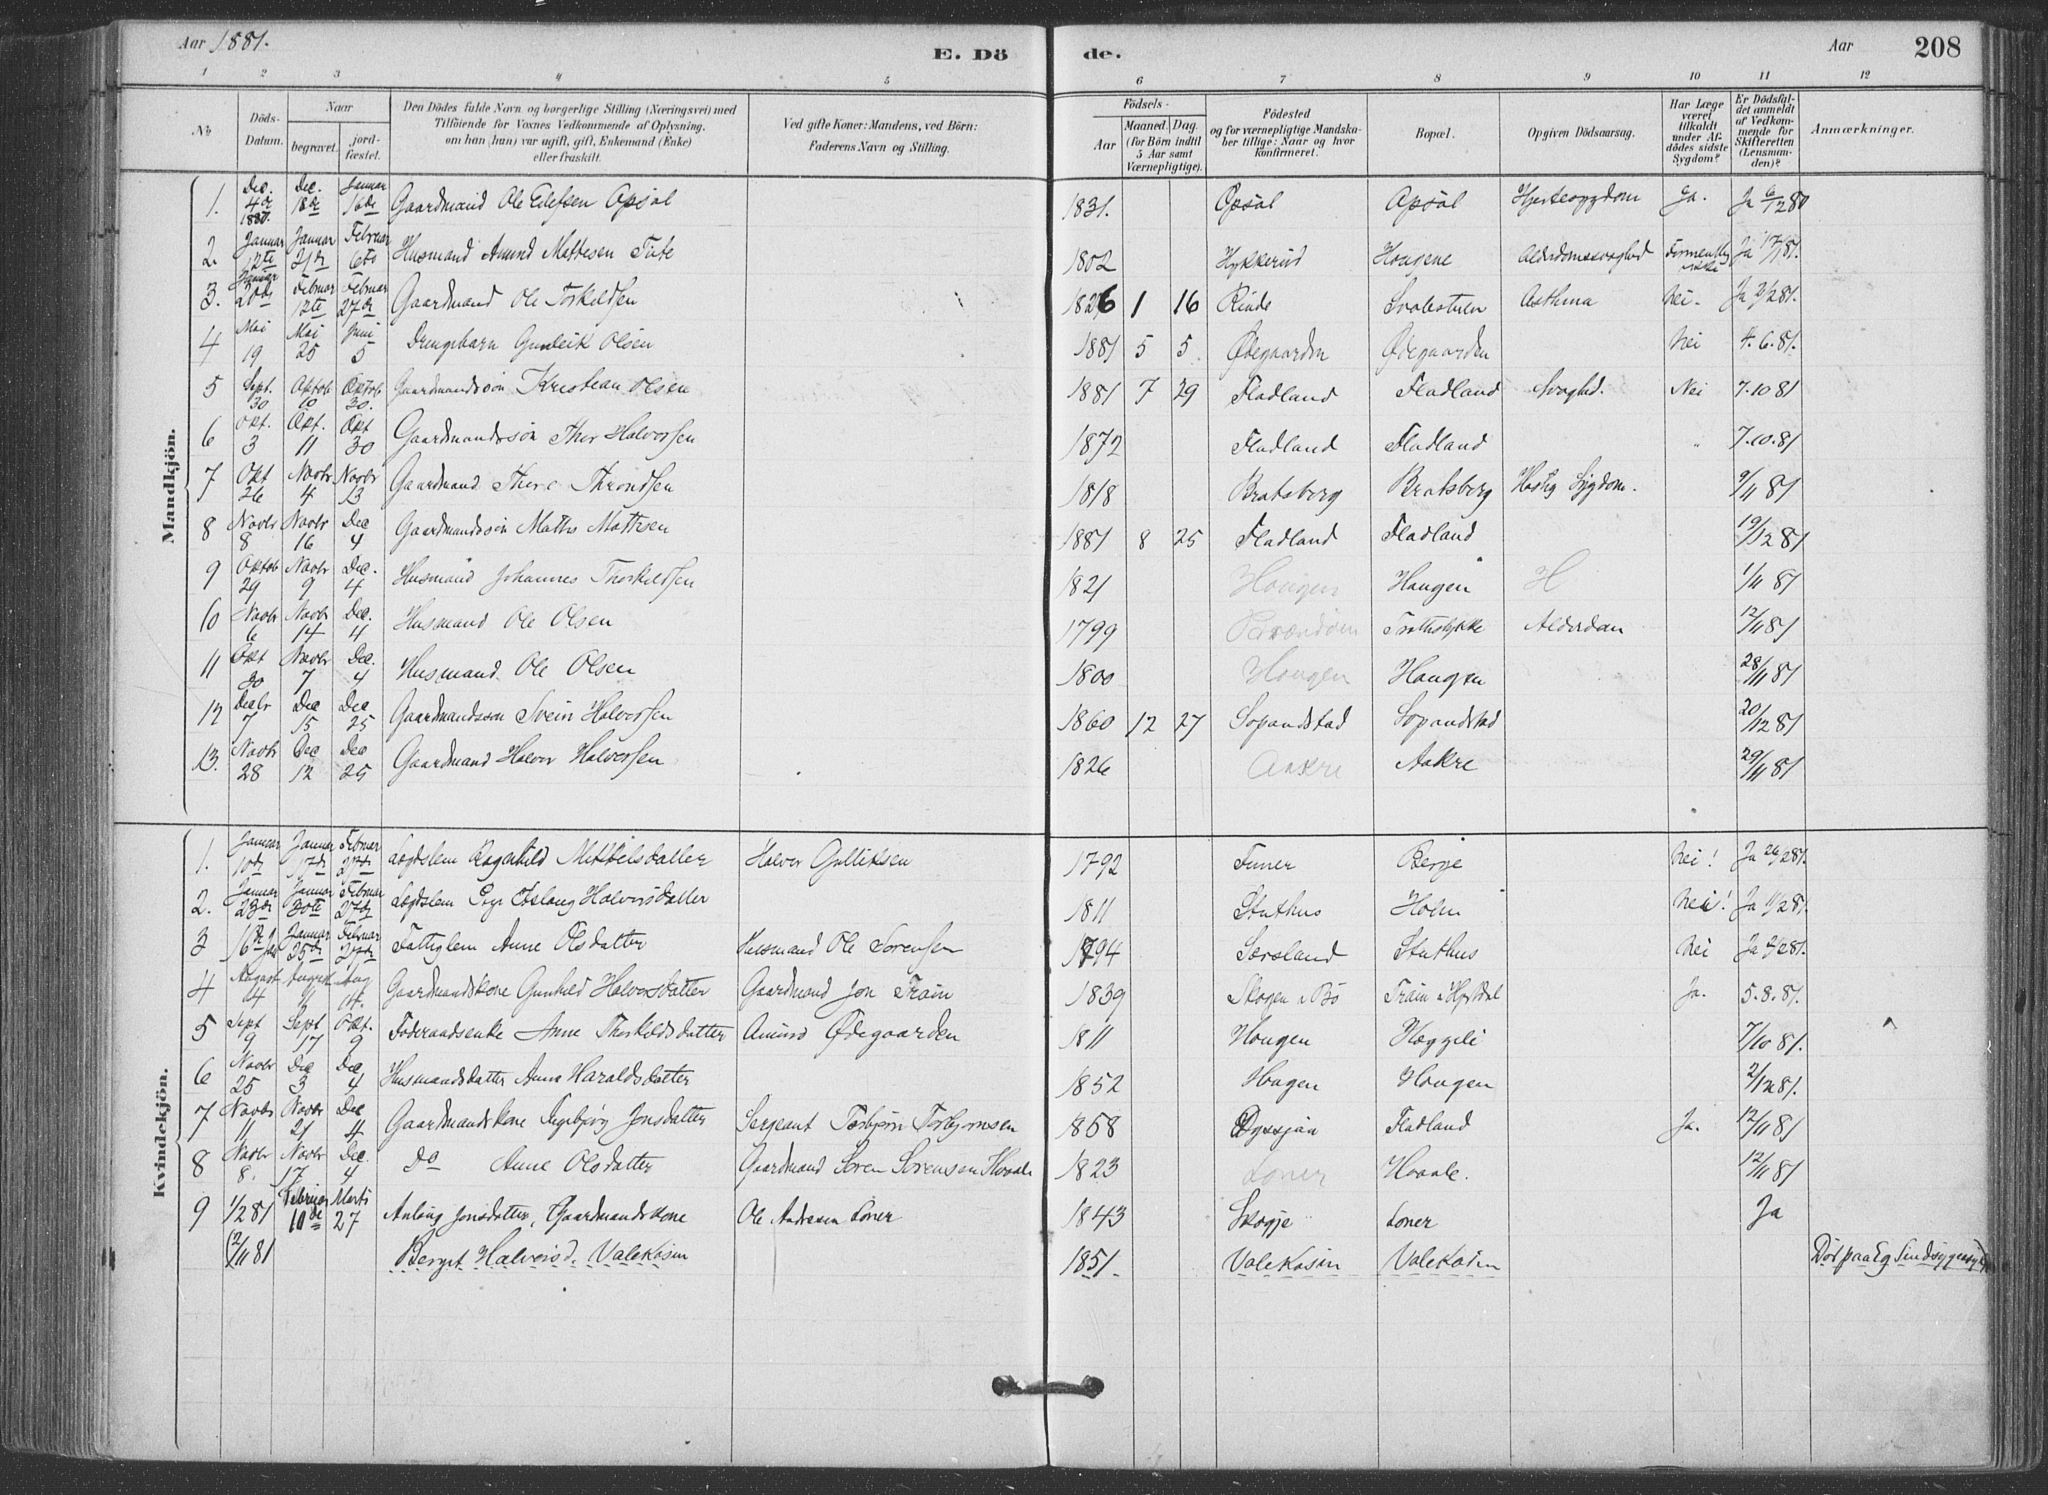 Aar 1881.
E. Dö
de.
Aar
208
1 2 3 4 5 6 7 8 9 10 11 12
No
Döds-Datum.
Naar
begravet.
jord-fæstet.
Den Dödes fulde Navn og borgerlige Stilling (Næringsvei) med
Tilföiende for Voxnes Vedkommende af Oplysning,
om han (hun) var ugift, gift, Enkemand (Enke)
eller fraskilt.
Ved gifte Koner: Mandens, ved Börn:
Faderens Navn og Stilling.
Födsels-
Aar
Maaned. Dag.
(for Börn indtil
5 Aar samt
Værnepligtige).
Födested
og for værnepligtige Mandska-
ber tillige: Naar og hvor
konfirmeret.
Bopæl.
Opgiven Dödsaarsag.
Har Læge
været
tilkaldt
under Af-
dödes sidste
Sygdom?
Er Dödsfal-
det anmeldt
af Vedkom-
mende for
Skifteretten
(Lensman-
den)?
Anmærkninger.
Mandkjön.
1. Dec. 4de 1880. Dec. 18de Januar 16de Gaardmand Ole Olefsen Opsöl 1831. Opsöl Opsöl Hjertesygdom Ja. Ja 6/12 80
2. Januar 12te Januar 21de Februar 6te Husmand Amund Mattesen 1802 Hykkerud Hougene Alderdomssvaghed Ja 17/1 81.
3. Januar 20de Februar 12te Februar 27de Gaardmand Ole Torkildsen 1826 1 16 Rinde Svalestuen Asthma Nei. Ja 2/2 81.
4 Mai 19 Mai 25 Juni 5 Drengebarn Gunleik Olsen 1881 5 5 Ødegaarden Ødegaarden Nei 4.6.81.
5 Sept. 30 Oktob 10 Oktob 30. Gaardmandssön Kristian Olsen 1881 7 29 Fladland Fladland Svaghed. Nei 7.10 81
6 Okt. 3 Okt. 11 Okt 30 Gaardmandssön Thor Halvorsen 1872 Fladland Fladland " 7.10.81
7 Okt 26 Novbr 4 Novbr 13 Gaardmand Thore Throndsen 1818 Bratsberg Bratsberg Hastig Sygdom. 9/11 81
8 Novbr 8 Novbr 16 Dec 4 Gaardmandssön Mathis Mattisen 1881 8 25 Fladland Fladland 19/12 81
9 Oktob 29 Novbr 9 Dec. 4 Husmand Johannes Thorkildsen 1821 Hougen Haugen H 1/11 81
10 Novbr 6 Novbr 14 Dec. 4 Husmand Ole Olsen 1799 Alderdom 12/11 81
11 Okt 30 Novbr 7 Dec. 4 Husmand Ole Olsen 1800 Hougen Haugen 28/11 81
12 Decbr 7 Dec 15 Dec 25 Gaardmandsson Svein Halvorsen 1860 12 27 Sopandstad Sopandstad 20/12 81
13. Novbr 28 Dec 12 Dec 25 Gaardmand Halvor Halvorsen 1826 Aakre Aakre 29/11 81
Kvindekjön.
1. Januar 10de Januar 17de Februar 27de Lægdslem Ragnhild Mikkelsdatter Halvor Gulliksen 1792 Funer Berge Nei! Ja 26/2 81.
2. Januar 23de Januar 30te Februar 27de Lægdslem Gyr Aslaug Halvorsdatter 1811 Stuthus Holm Nei! Ja 11/2 81.
3 16de Jan Januar 25de Februar 27de Fattiglem Anne Olsdatter Husmand Ole Sorensen 1794 Sersland Stuthus Nei Ja 2/2 81.
4 August 4 August 11 Aug 14. Gaardmandskone Gunhild Halvorsdatter Gaardmand Jon Traim 1839 Skogen i Bö Traim i Hjertdal Ja. 5.8.81.
5 Sept 9 Sept 17 Okt. 9 Föderaadsenke Anne Thorkildsdatter Amund Ødegaarden 1811 Hougen Hæggeli 7/10 81.
6 Novbr 25 Dec 3 Dec 4 Husmandsdatter Anne Haraldsdatter 1852 Hougen Hougen 2/12 81.
7 Novbr 11 Novbr 21 Dec 4 Gaardmandskone Ingebjörg Jonsdatter Sergeant Torbjörn Torbjörnsen 1858 Fladland Ja. 12/11 81
8 Novbr 8. Novbr 17 Dec. 4 Do Anne Olsdatter Gaardmand Sören Sörensen Hovale 1823 Loner Hovale. 12/11 81
9 1/2 81 Februar 10de Marts 27 Aslaug Jonsdatter, Gaardmandskone Ole Andresen Loner 1843 Skogje Loner Ja
12/11 81 Bergit Halvorsd. Valekasin 1851. Valekasin Valekasin Död paa Eg Sindsygeasyl